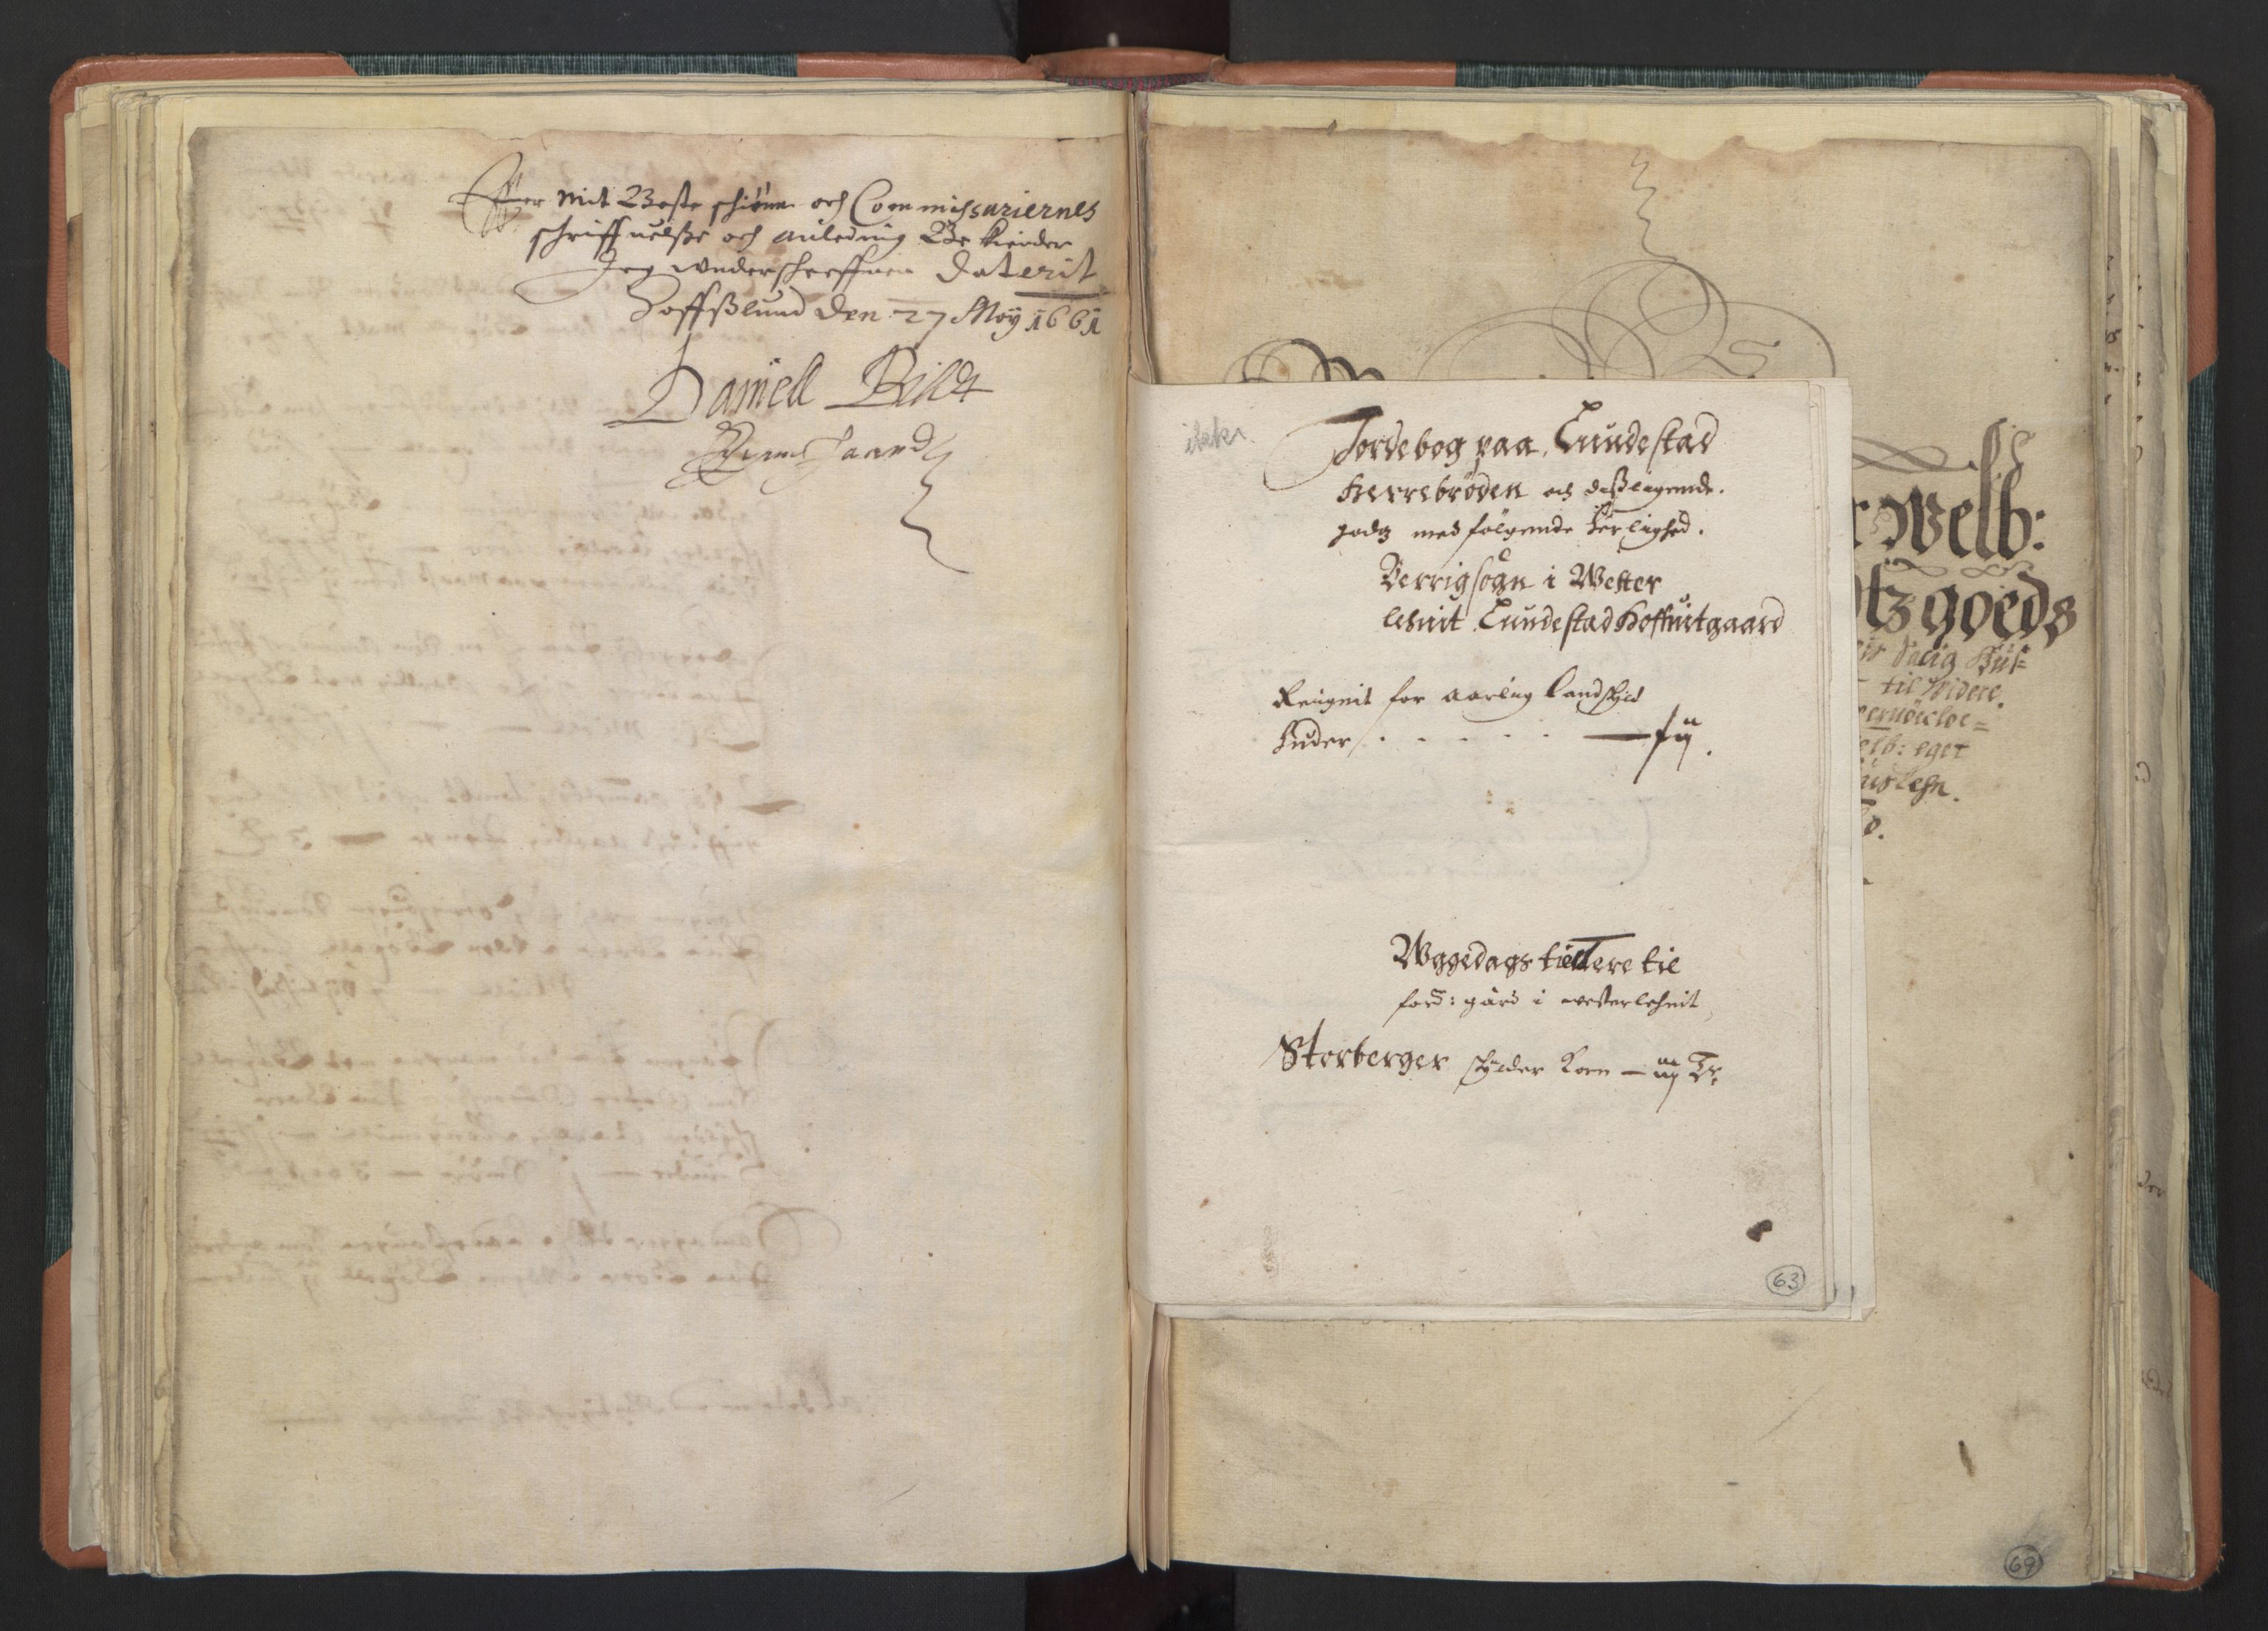 Effter mit Beste schiønn och Commissariernes
schriffuelsse och anledning Bekiender
Jeg underschreffuen Daterit
Hoffslund den 27 Maÿ 1661
Daniell Bildt
Egene haand
Jordebog paa Lundestad
Herrebröden och dessliggende
godtz med følgende herlighed.
Berrig sogn i Wester
lehnit Lundestad Hoffuitgaard
Reignit for aarlig Landschyld
Huder . . . . . — fÿ.
Wggedags tienere til
ford: gård i westerlehnit
Storberger schylder Korn — iiij Tr.
63
Welb:
goeds
dalig
til Widere.
elb: eget
Lehn.
69